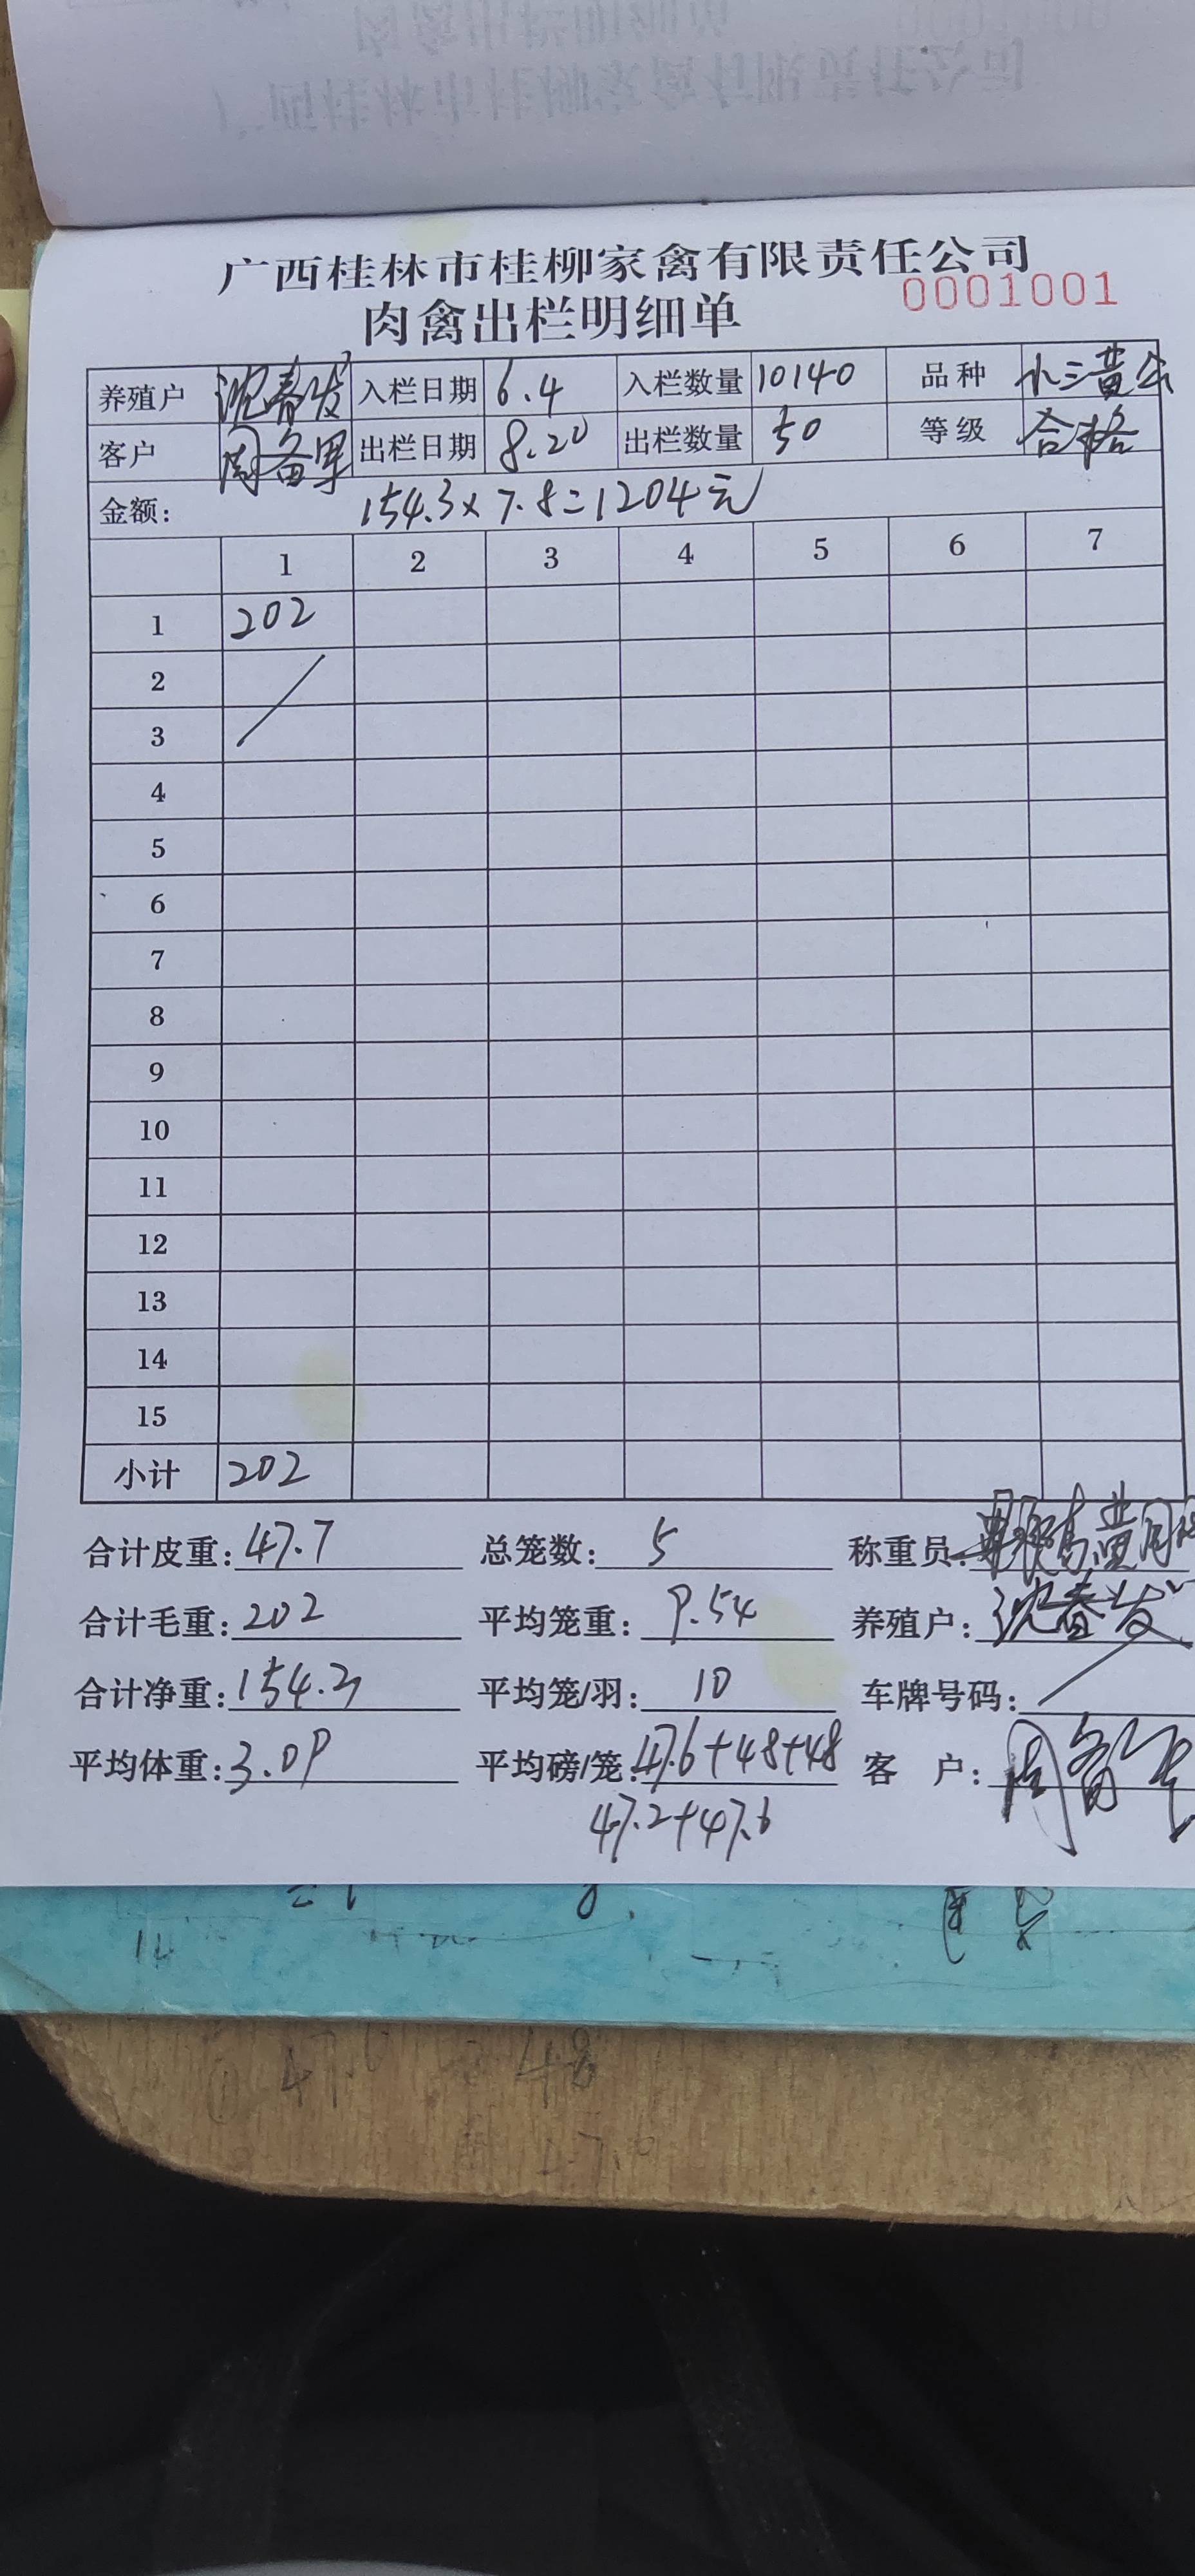 广西桂林市桂柳家禽有限责任公司
肉禽出栏明细单 0001001
养殖户 沈春发 入栏日期 6.4 入栏数量 10140 品种 小三黄
客户 周备军 出栏日期 8.20 出栏数量 50 等级 合格
金额: 154.3×7.8=1204元
1 2 3 4 5 6 7
1 202
2
3
4
5
6
7
8
9
10
11
12
13
14
15
小计 202
合计皮重: 47.7 总笼数: 5 称重员:
合计毛重: 202 平均笼重: 9.54 养殖户: 沈春发
合计净重: 154.3 平均笼/羽: 10 车牌号码:
平均体重: 3.09 平均磅/笼: 47.6+48+48 客 户: 周备军
47.2+47.6
48